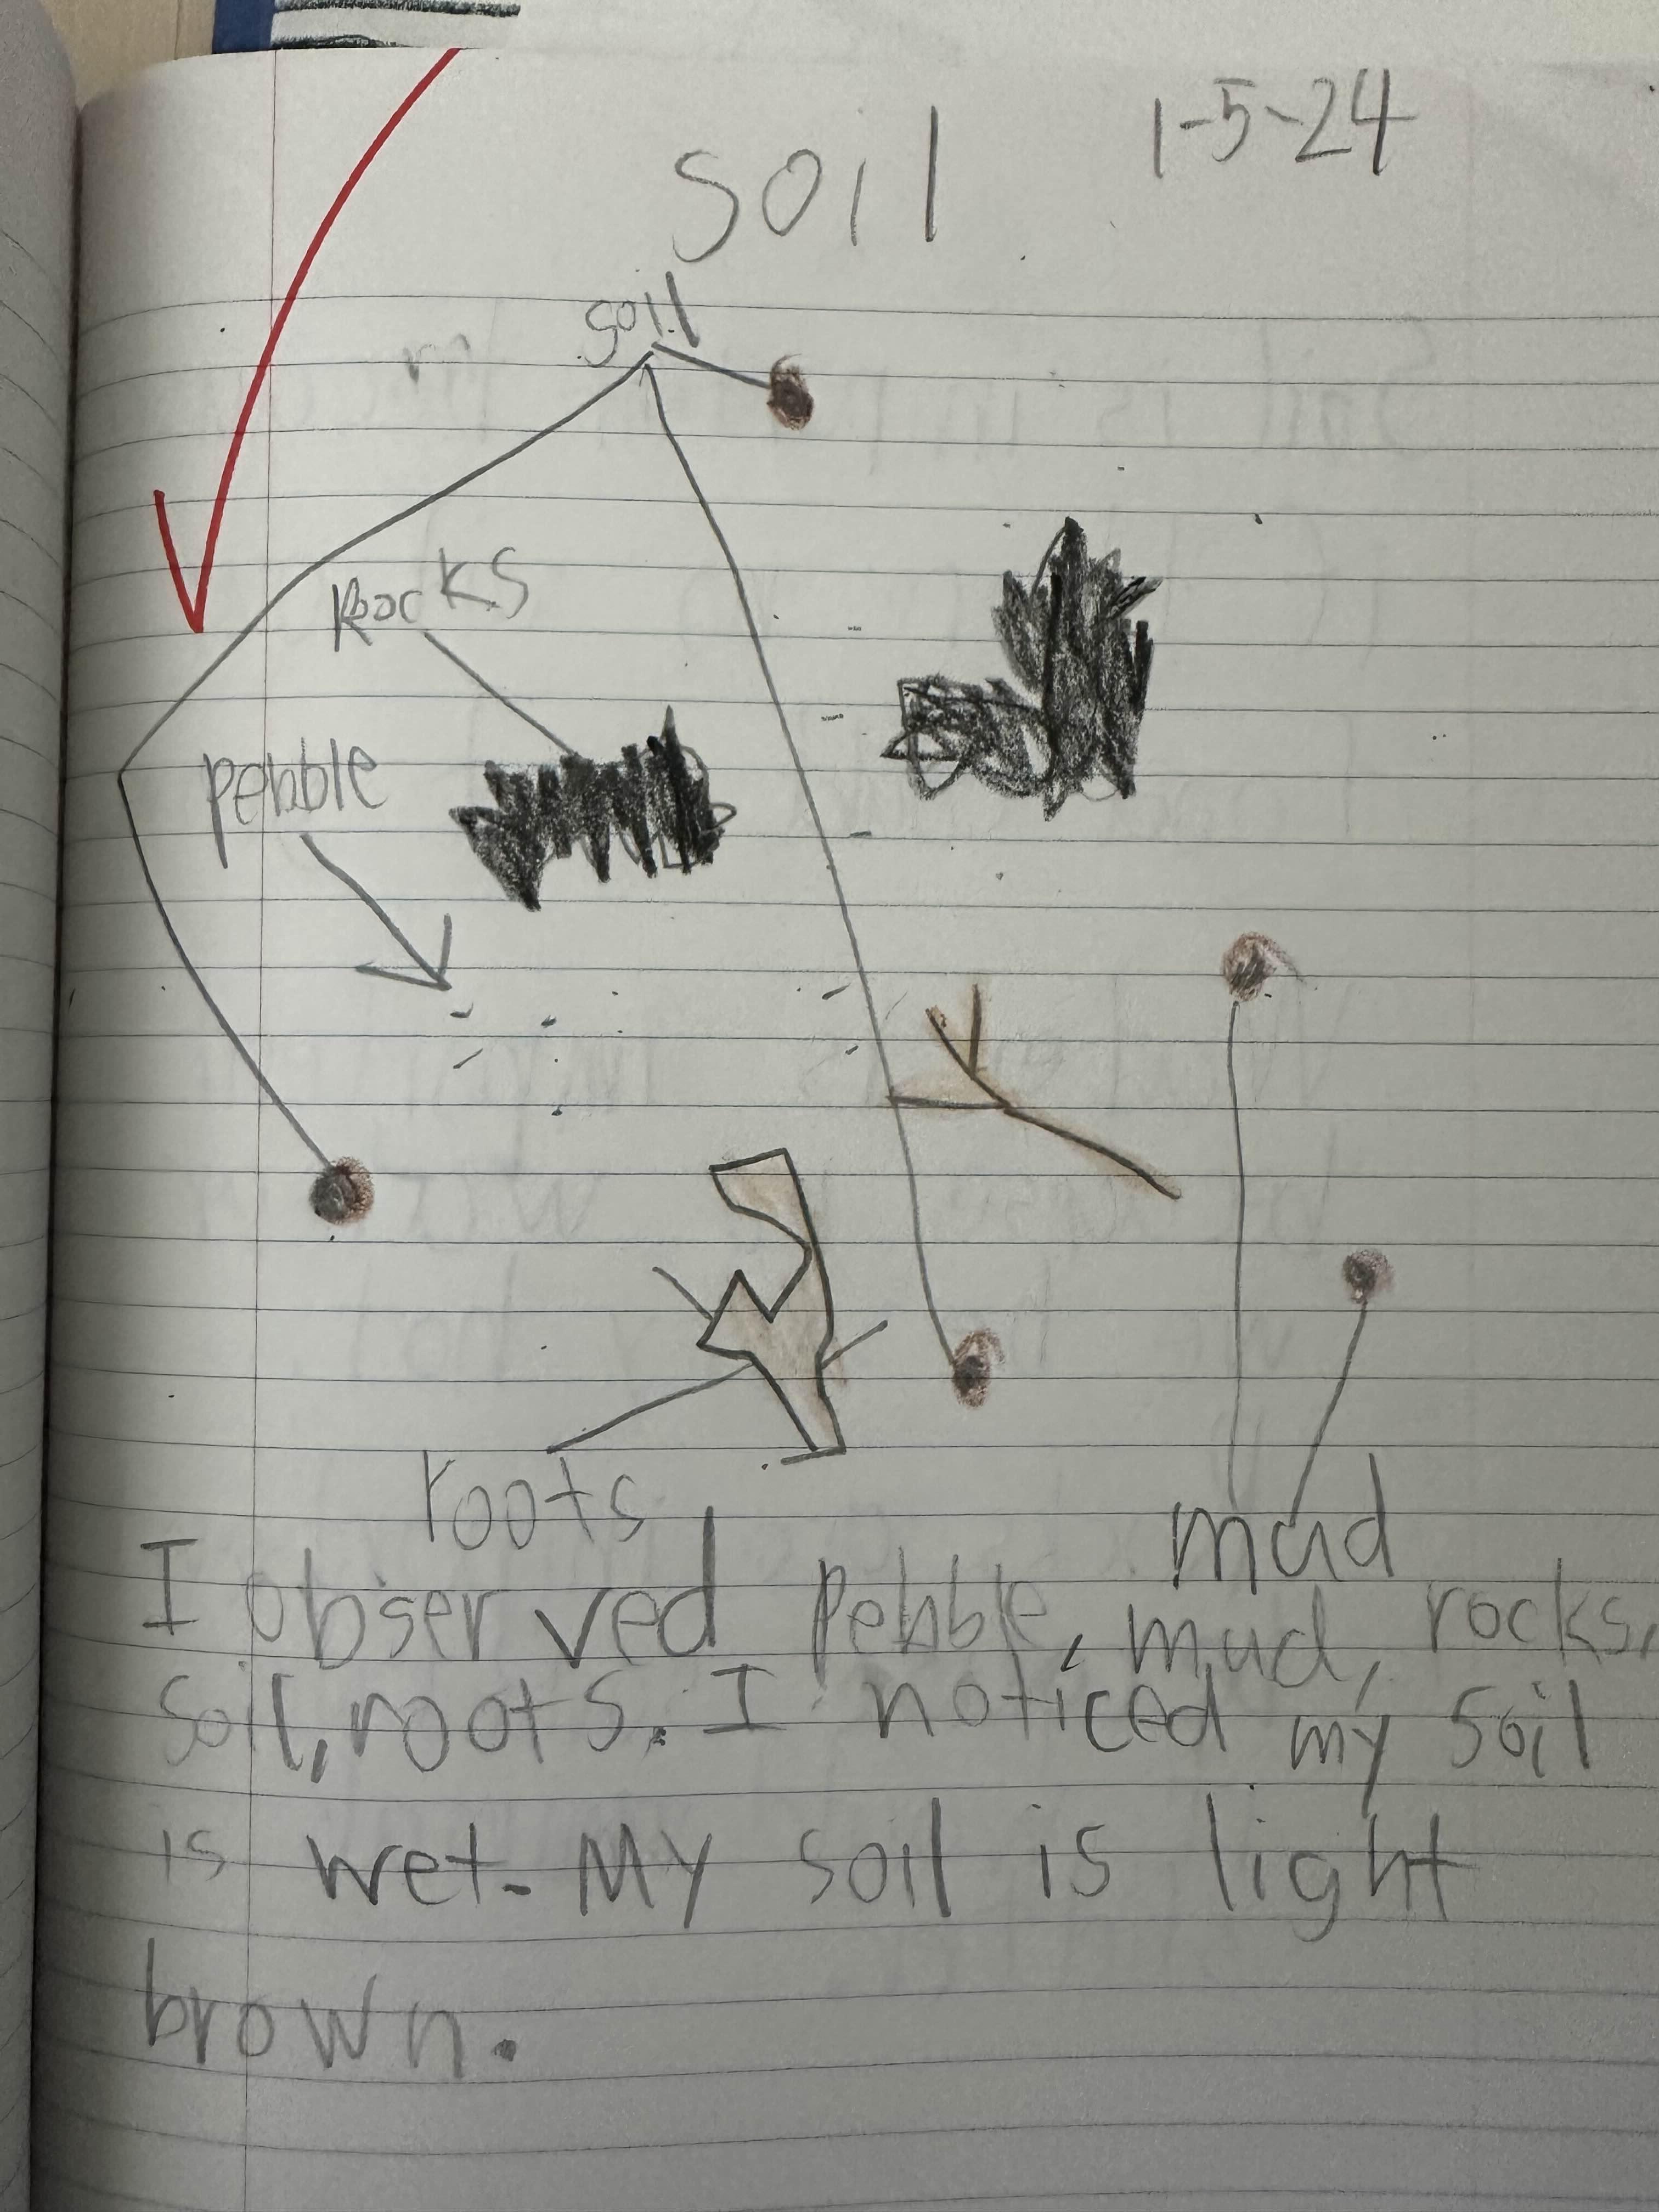 1-5-24
soil
soil
Rocks
pebble
roots
mud
I observed pebble, mud, rocks,
soil, roots. I noticed my soil
is wet. My soil is light
brown.